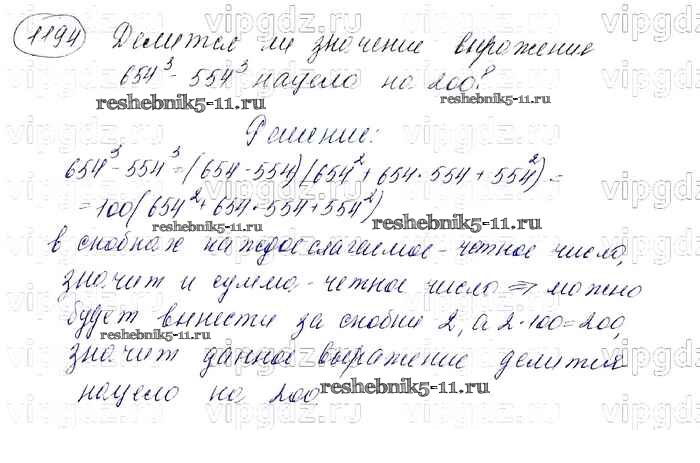 1194 Делится ли значение выражения
654³ - 554³ нацело на 200?
reshebnik5-11.ru reshebnik5-11.ru
Решение:
654³ - 554³ = (654 - 554)(654² + 654 · 554 + 554²) =
= 100(654² + 654 · 554 + 554²)
reshebnik5-11.ru
в скобках каждое слагаемое - четное число,
значит и сумма - четное число ⇒ можно
будет вынести за скобки 2, а 2 · 100 = 200,
reshebnik5-11.ru
значит данное выражение делится
нацело на 200
reshebnik5-11.ru
vipgdz.com